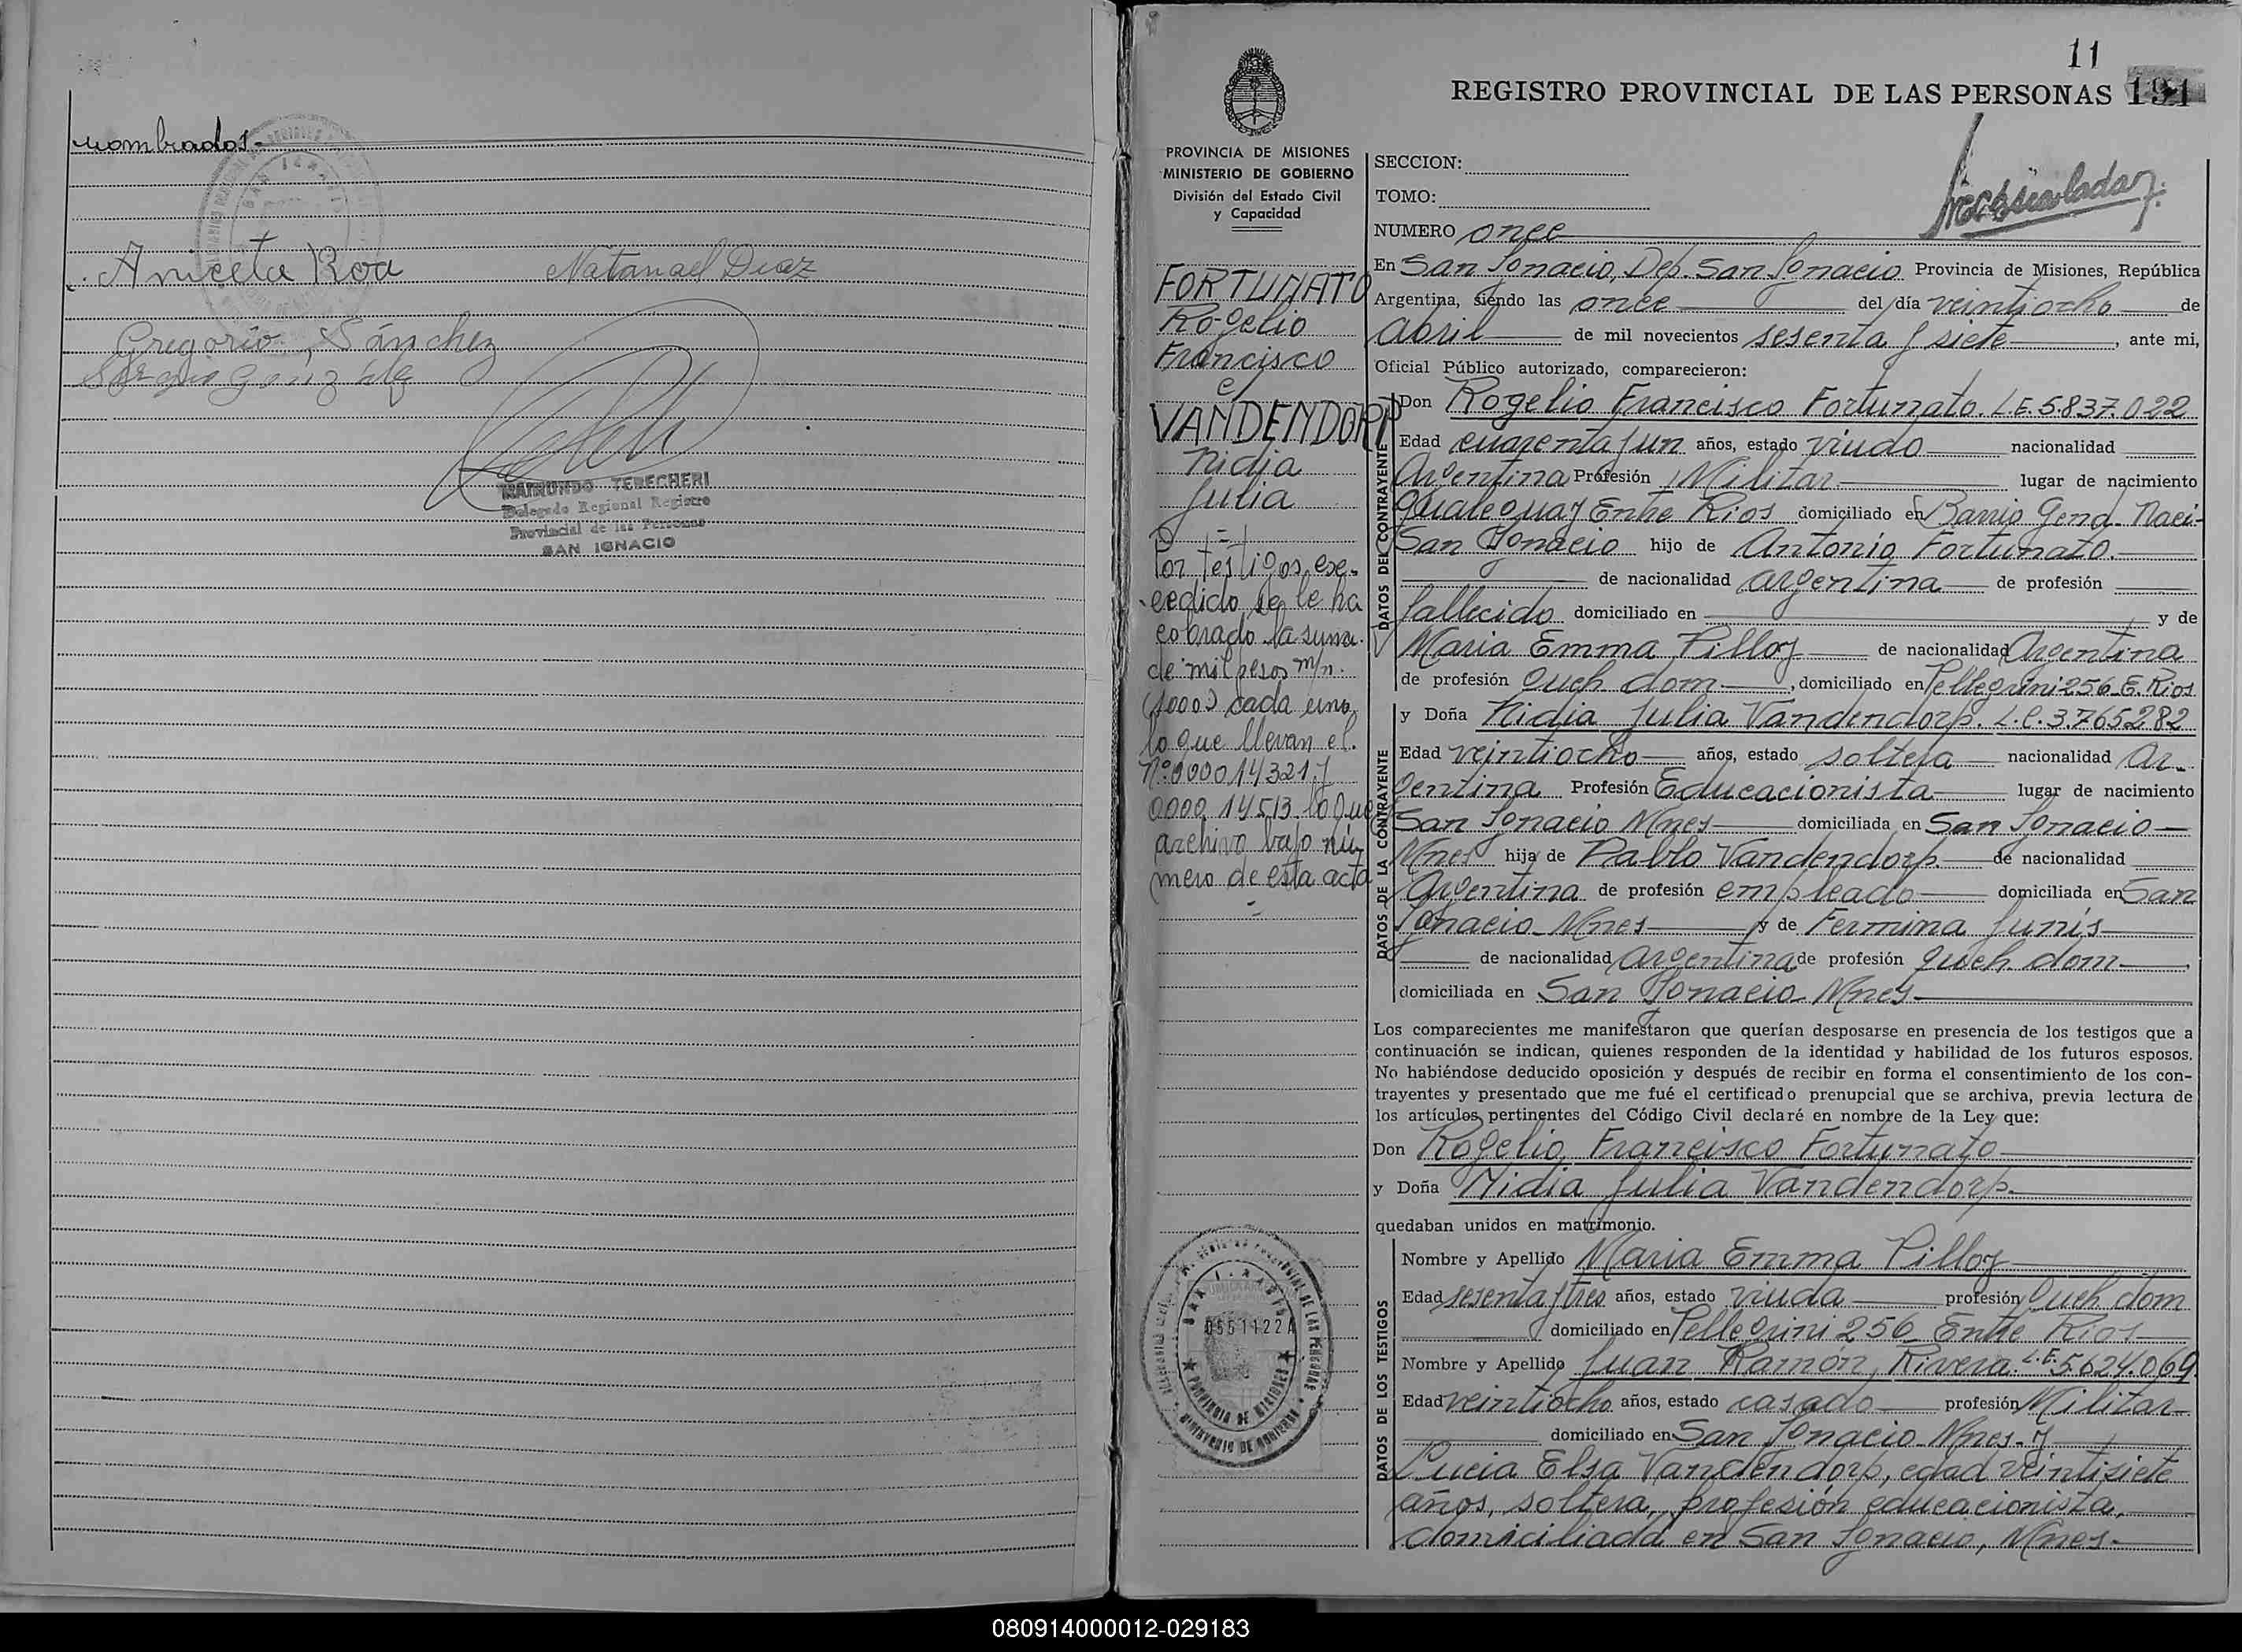 nombrados.-
Aniceta Roa
Natanael Diaz
Gregorio Sánchez
RAIMUNDO TERECHERI
Delegado Regional Registro
Provincial de las Personas
SAN IGNACIO
11
REGISTRO PROVINCIAL DE LAS PERSONAS 191
PROVINCIA DE MISIONES
MINISTERIO DE GOBIERNO
División del Estado Civil
y Capacidad
FORTUNATO
Rogelio
Francisco
e/
VANDENDORP
Nidia
Julia
Por testigos exe-
cedido se le ha
cobrado la suma
de mil pesos m/n.
(1000) cada uno,
lo que llevan el.
Nº 000014321 y
0000 14513 lo que
archivo bajo nú-
mero de esta acta
SECCION:
TOMO:
NUMERO once
En San Ignacio, Dep. San Ignacio Provincia de Misiones, República
Argentina, siendo las once del día veintiocho de
Abril de mil novecientos sesenta y siete, ante mi,
Oficial Público autorizado, comparecieron:
DATOS DEL CONTRAYENTE
Don Rogelio Francisco Fortunato. L.E. 5.837.022
Edad cuarenta y un años, estado viudo nacionalidad
Argentina Profesión Militar lugar de nacimiento
Gualeguay Entre Rios domiciliado en Barrio Gend. Naci-
San Ignacio hijo de Antonio Fortunato.
de nacionalidad argentina de profesión
fallecido domiciliado en y de
Maria Emma Pilloy de nacionalidad Argentina
de profesión queh. dom, domiciliado en Pellegrini 256 E. Rios
DATOS DE LA CONTRAYENTE
y Doña Nidia Julia Vandendorp. L.C. 3.765282
Edad veintiocho años, estado soltera nacionalidad Ar-
gentina Profesión Educacionista lugar de nacimiento
San Ignacio Mnes domiciliada en San Ignacio
Mnes hija de Pablo Vandendorp. de nacionalidad
Argentina de profesión empleado domiciliada en San
Ignacio Mnes y de Fermina Junis
de nacionalidad argentina de profesión queh. dom
domiciliada en San Ignacio Mnes
Los comparecientes me manifestaron que querían desposarse en presencia de los testigos que a
continuación se indican, quienes responden de la identidad y habilidad de los futuros esposos.
No habiéndose deducido oposición y después de recibir en forma el consentimiento de los con-
trayentes y presentado que me fué el certificado prenupcial que se archiva, previa lectura de
los artículos pertinentes del Código Civil declaré en nombre de la Ley que:
Don Rogelio Francisco Fortunato
y Doña Nidia Julia Vandendorp.
quedaban unidos en matrimonio.
DATOS DE LOS TESTIGOS
Nombre y Apellido Maria Emma Pilloy
Edad sesenta y tres años, estado viuda profesión queh dom
domiciliado en Pellegrini 256 Entre Rios
Nombre y Apellido Juan Ramón Rivera L.E. 5.624.069
Edad veintiocho años, estado casado profesión Militar
domiciliado en San Ignacio Mnes. y
Lucia Elsa Vandendorp, edad veintisiete
años, soltera, profesión educacionista,
domiciliada en San Ignacio, Mnes.
0551122A
PROVINCIA DE MISIONES
MINISTERIO DE GOBIERNO
080914000012-029183